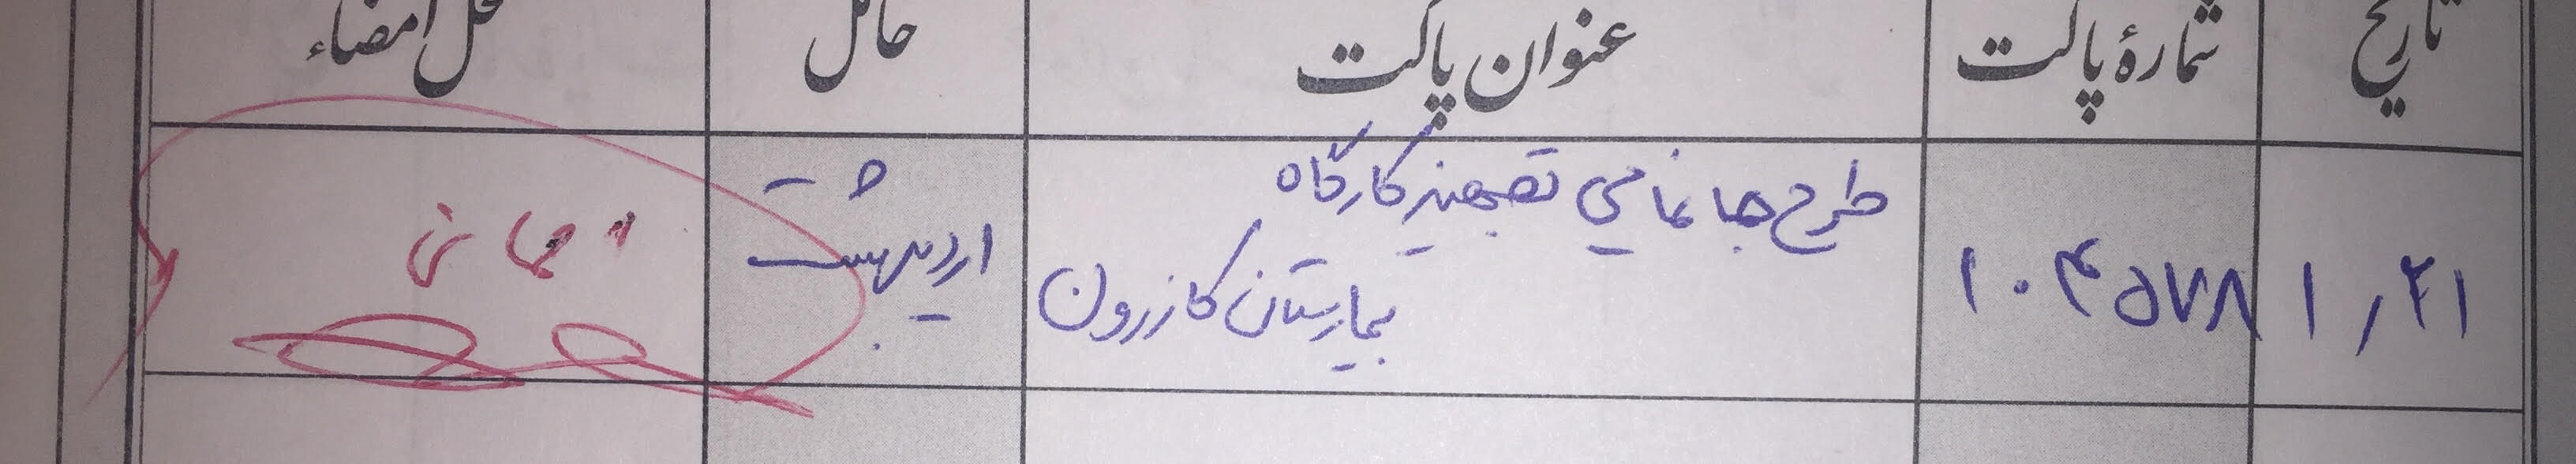 تاریخ شمارهٔ پاکت عنوان پاکت حامل محل امضاء
۱٫۲۱ ۱۰۴۵۷۸ طرح جانمایی تجهیز کارگاه
بیمارستان کازرون
اردیبهشت